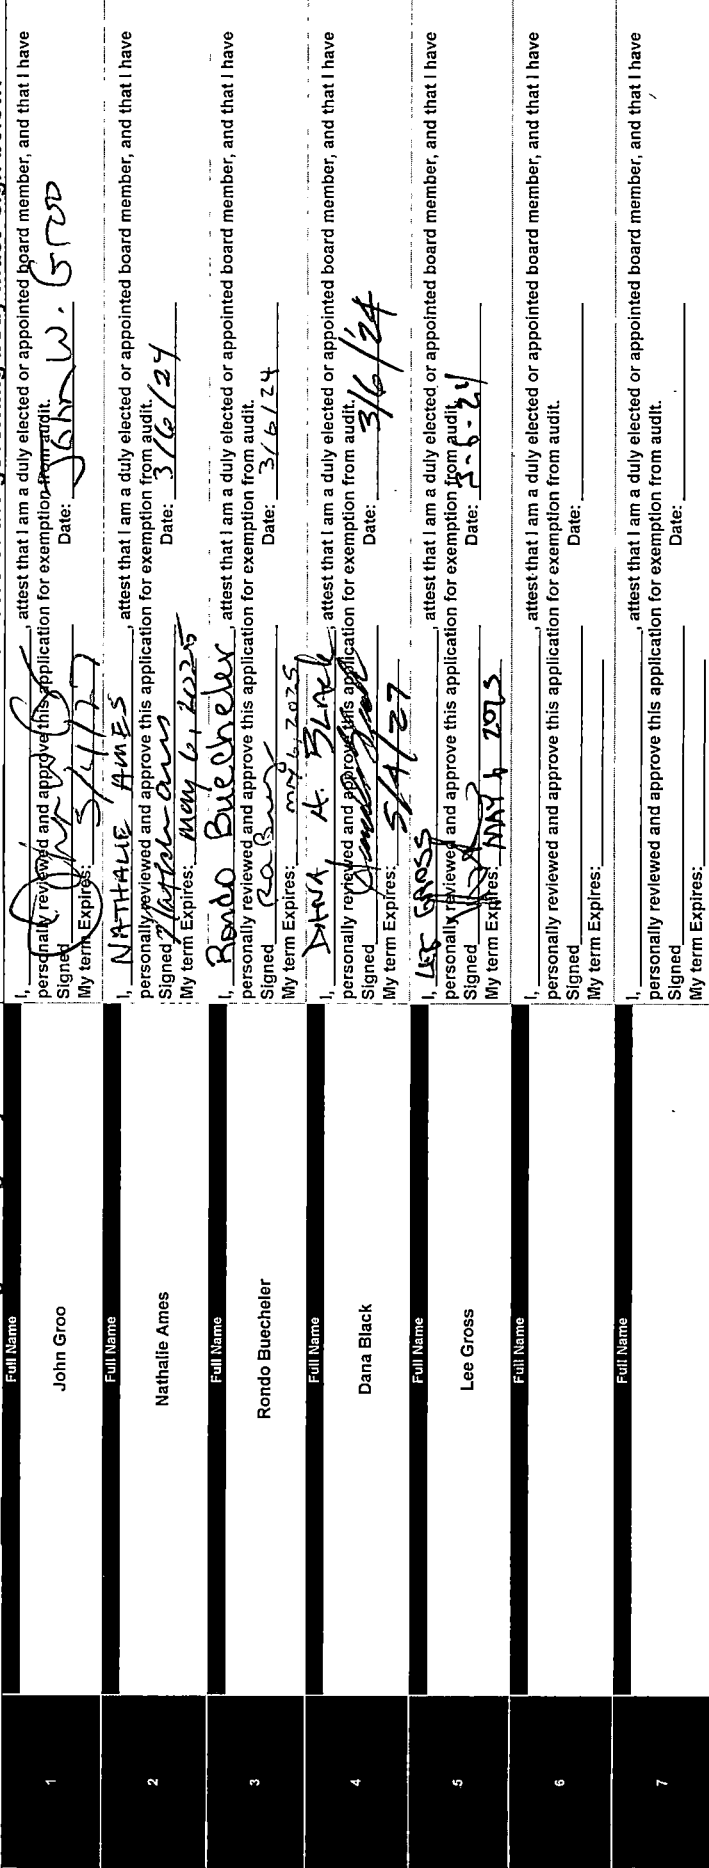 1
Full Name
John Groo
I, , attest that I am a duly elected or appointed board member, and that I have
personally reviewed and approve this application for exemption from audit.
Signed Date: John W. Groo
My term Expires: 5/4/27
2
Full Name
Nathalie Ames
I, NATHALIE AMES , attest that I am a duly elected or appointed board member, and that I have
personally reviewed and approve this application for exemption from audit.
Signed Date: 3/6/24
My term Expires: May 6, 2025
3
Full Name
Rondo Buecheler
I, Rondo Buecheler , attest that I am a duly elected or appointed board member, and that I have
personally reviewed and approve this application for exemption from audit.
Signed Date: 3/6/24
My term Expires: May 6, 2025
4
Full Name
Dana Black
I, DANA A. BLACK , attest that I am a duly elected or appointed board member, and that I have
personally reviewed and approve this application for exemption from audit.
Signed Date: 3/6/24
My term Expires: 5/4/27
5
Full Name
Lee Gross
I, LEE GROSS , attest that I am a duly elected or appointed board member, and that I have
personally reviewed and approve this application for exemption from audit.
Signed Date: 3-6-24
My term Expires: MAY 6 2025
6
Full Name
I, , attest that I am a duly elected or appointed board member, and that I have
personally reviewed and approve this application for exemption from audit.
Signed Date:
My term Expires:
7
Full Name
I, , attest that I am a duly elected or appointed board member, and that I have
personally reviewed and approve this application for exemption from audit.
Signed Date:
My term Expires: